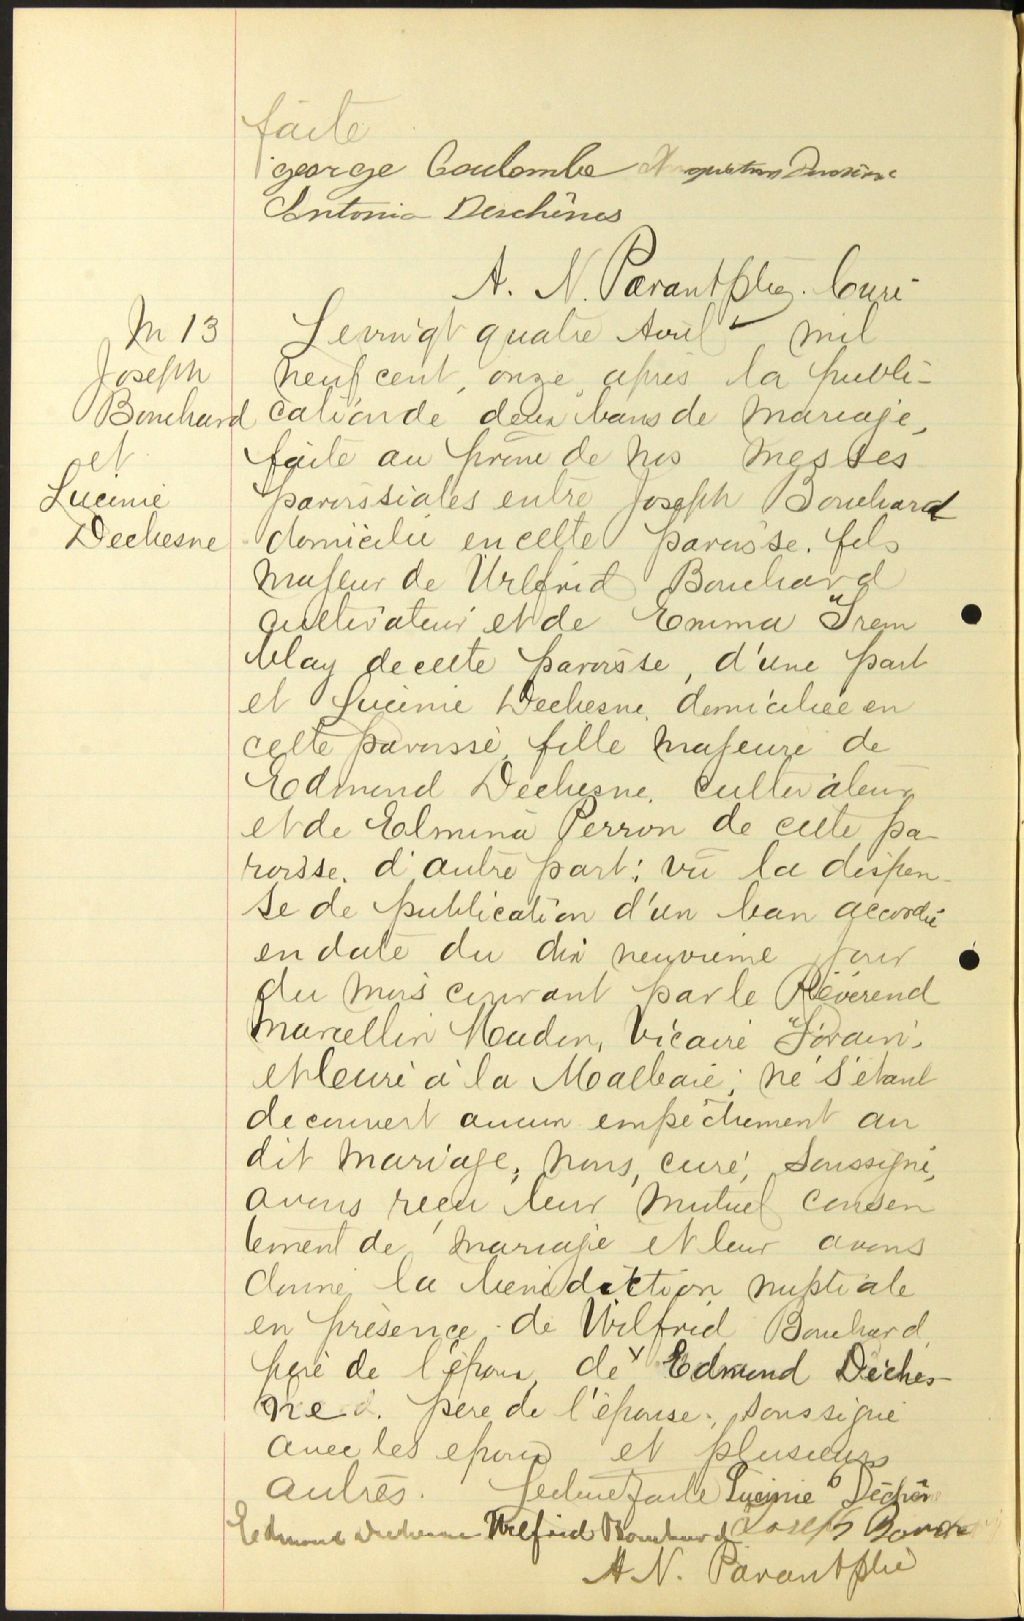 faite
george Coulombe
Antonia Deschênes
A. N. Parant ptre. Curé
M 13
Joseph
Bouchard
et
Lucinie
Dechesne
Le vingt quatre Avril mil
neuf cent, onze, après la publi-
cation de deux bans de mariage,
faite au prône de nos messes
paroissiales entre Joseph Bouchard
domicilié en cette paroisse. fils
majeur de Wilfrid Bouchard
cultivateur et de Emma Trem
blay de cette paroisse, d'une part
et Lucinie Dechesne, domiciliée en
cette paroisse, fille majeure de
Edmond Dechesne, cultivateur
et de Elmina Perron de cette pa-
roisse. d'autre part; vu la dispen-
se de publication d'un ban accordée
en date du dix neuvième jour
du mois courant par le Révérend
Marcellin Hudon, Vicaire Forain,
et Curé à la Malbaie; ne s'étant
decouvert aucun empêchement au
dit mariage, nous, curé, soussigné,
avons reçu leur mutuel consen
tement de mariage et leur avons
donné la bénédiction nuptiale
en présence de Wilfrid Bouchard,
père de l'époux, de Edmond Déches-
ne père de l'épouse, soussigné
avec les epoux et plusieurs
autres. Lecture faite Lucinie Déchêne
Edmond Dechenne Wilfrid Bouchard Joseph Bouchard
A N. Parant ptre